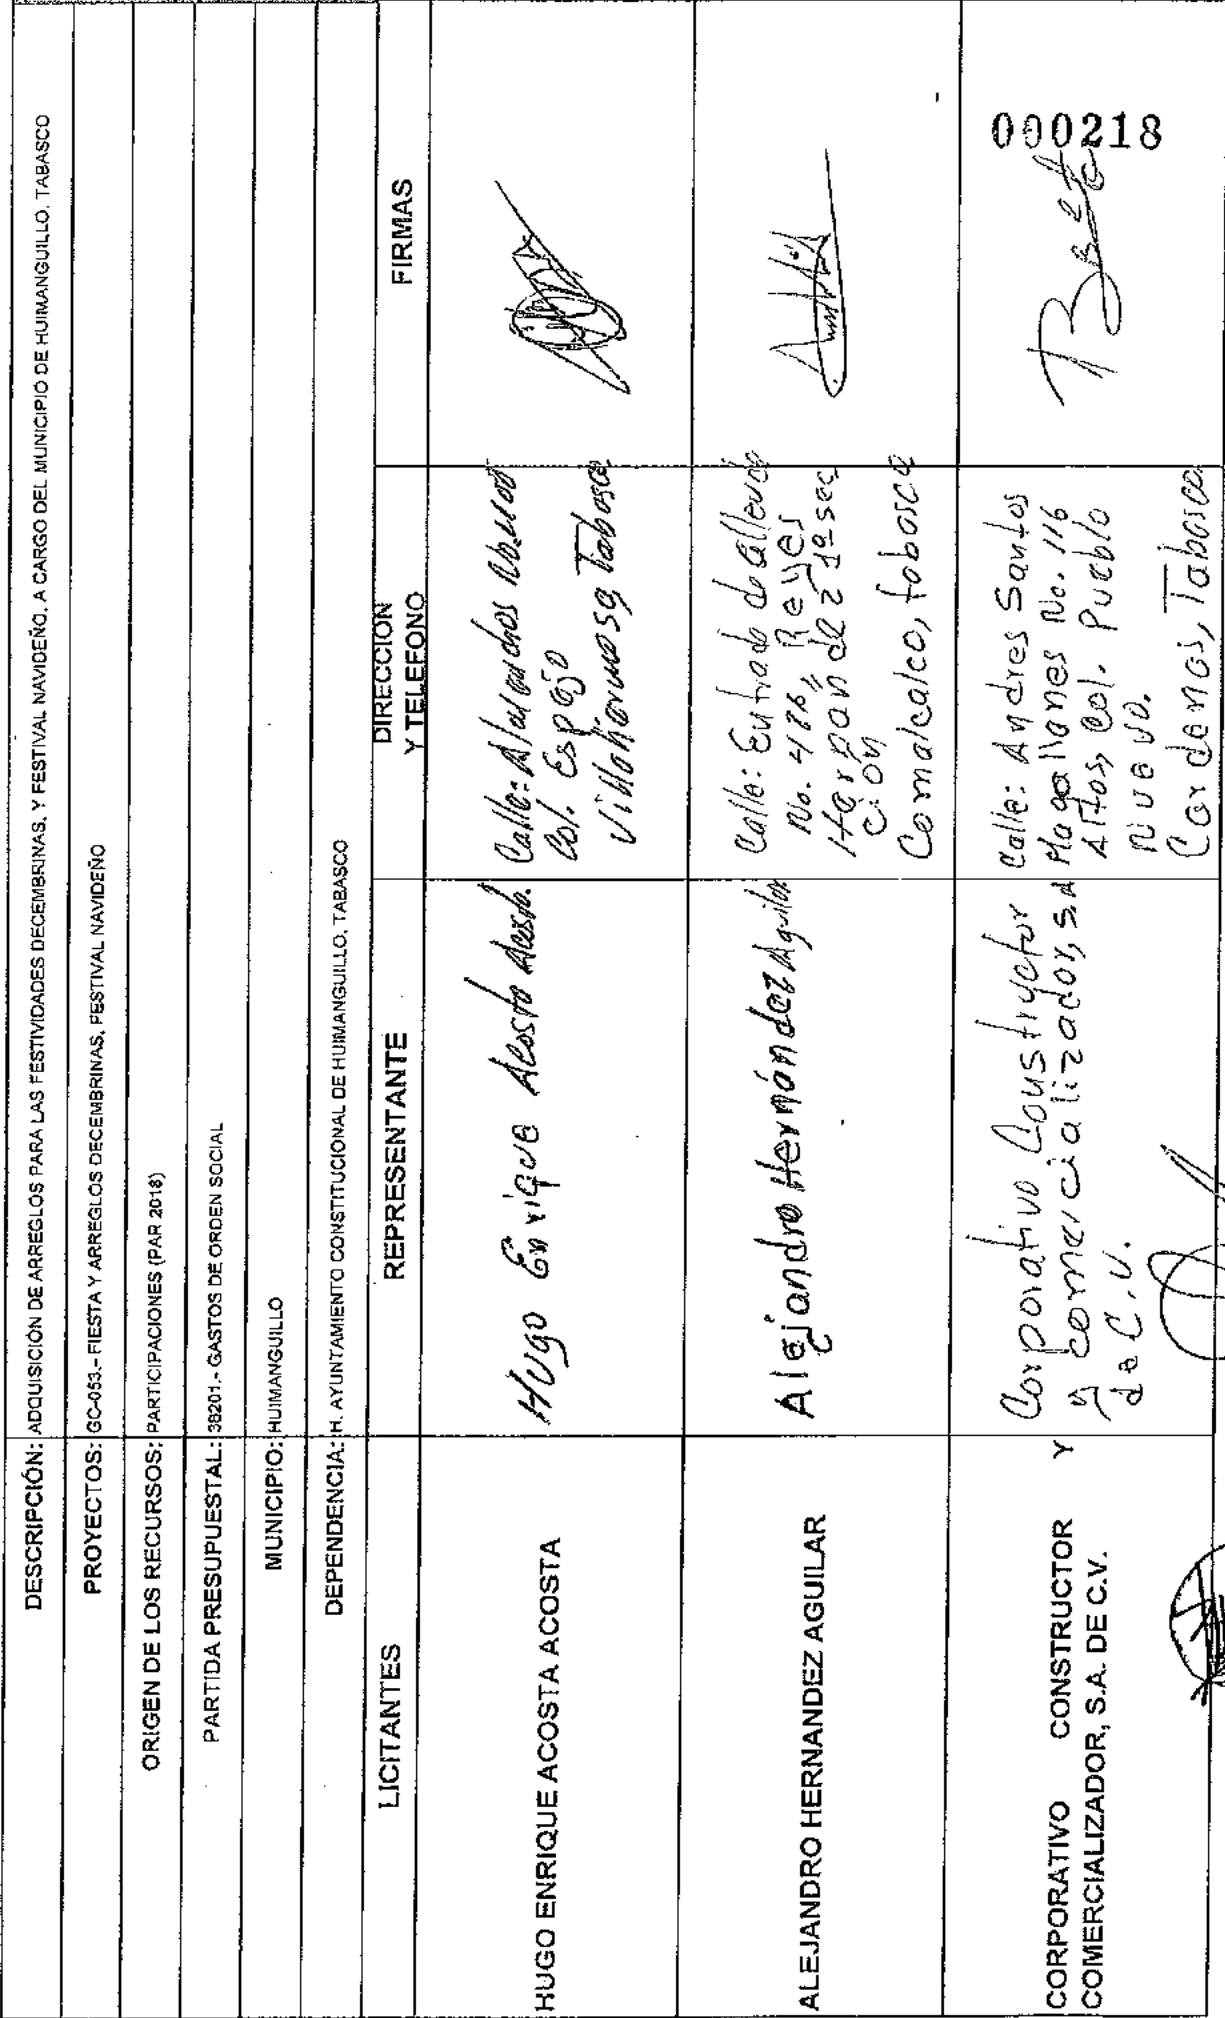 DESCRIPCIÓN: ADQUISICIÓN DE ARREGLOS PARA LAS FESTIVIDADES DECEMBRINAS, Y FESTIVAL NAVIDEÑO, A CARGO DEL MUNICIPIO DE HUIMANGUILLO, TABASCO
PROYECTOS: GC-053.- FIESTA Y ARREGLOS DECEMBRINAS, FESTIVAL NAVIDEÑO
ORIGEN DE LOS RECURSOS: PARTICIPACIONES (PAR 2018)
PARTIDA PRESUPUESTAL: 38201.- GASTOS DE ORDEN SOCIAL
MUNICIPIO: HUIMANGUILLO
DEPENDENCIA: H. AYUNTAMIENTO CONSTITUCIONAL DE HUIMANGUILLO, TABASCO
LICITANTES REPRESENTANTE DIRECCION Y TELEFONO FIRMAS
HUGO ENRIQUE ACOSTA ACOSTA
Hugo Enrique Acosta Acosta
Calle:
Col. Espejo
Villahermosa Tabasco
ALEJANDRO HERNANDEZ AGUILAR
Alejandro Hernández Aguilar
Calle: Entrada de
No. 426, Reyes
1ª sec
ción
Comalcalco, tabasco
CORPORATIVO CONSTRUCTOR Y
COMERCIALIZADOR, S.A. DE C.V.
Corporativo Constructor
y comercializador, S.A
de C.V.
Calle: Andres Santos
Magallanes No. 116
Altos, Col. Pueblo
Nuevo.
Cardenas, Tabasco
000218